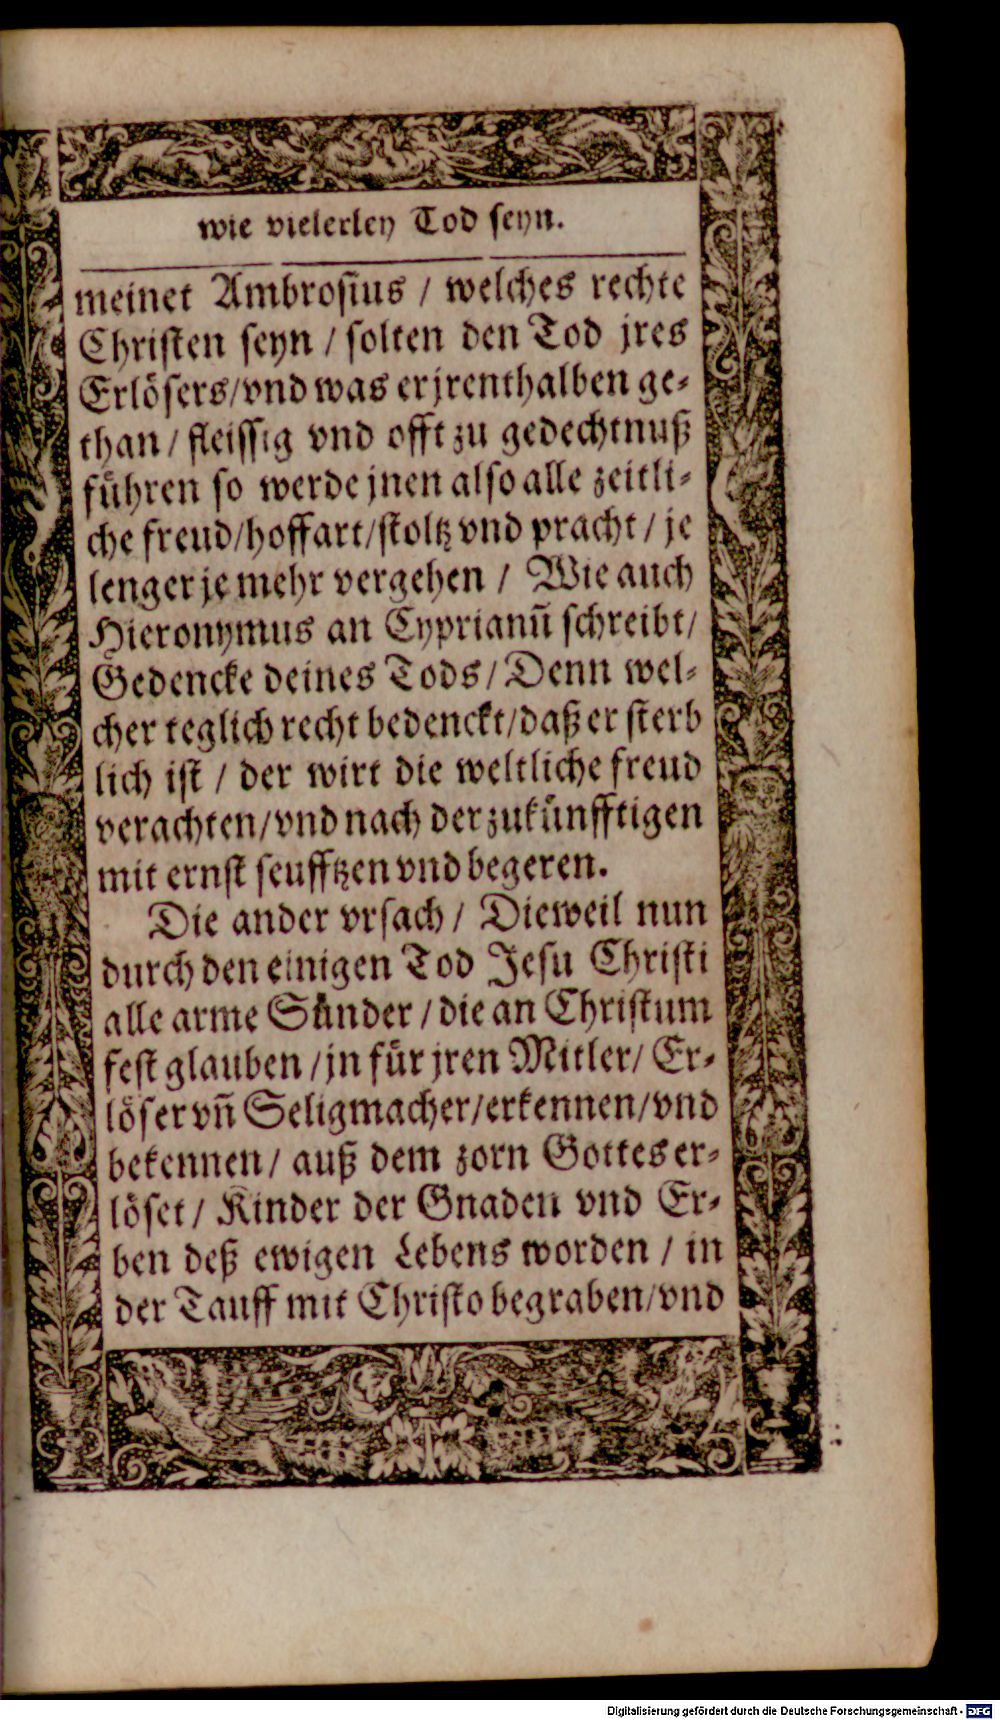 wie vielerley Tod seyn.
meinet Ambrosius / welches rechte
Christen seyn / solten den Tod jres
Erlösers/vnd was er jrenthalben ge-
than / fleissig vnd offt zu gedechtnuß
führen so werde jnen also alle zeitli-
che freud/hoffart/stoltz vnd pracht / je
lenger je mehr vergehen / Wie auch
Hieronymus an Cyprianū schreibt/
Gedencke deines Tods / Denn wel-
cher teglich recht bedenckt/daß er sterb
lich ist / der wirt die weltliche freud
verachten/vnd nach der zukünfftigen
mit ernst seufftzen vnd begeren.
Die ander vrsach / Dieweil nun
durch den einigen Tod Jesu Christi
alle arme Sünder / die an Christum
fest glauben / jn für jren Mitler/ Er-
löser vñ Seligmacher/erkennen/vnd
bekennen / auß dem zorn Gottes er-
löset / Kinder der Gnaden vnd Er-
ben deß ewigen Lebens worden / in
der Tauff mit Christo begraben/vnd
Digitalisierung gefördert durch die Deutsche Forschungsgemeinschaft - DFG